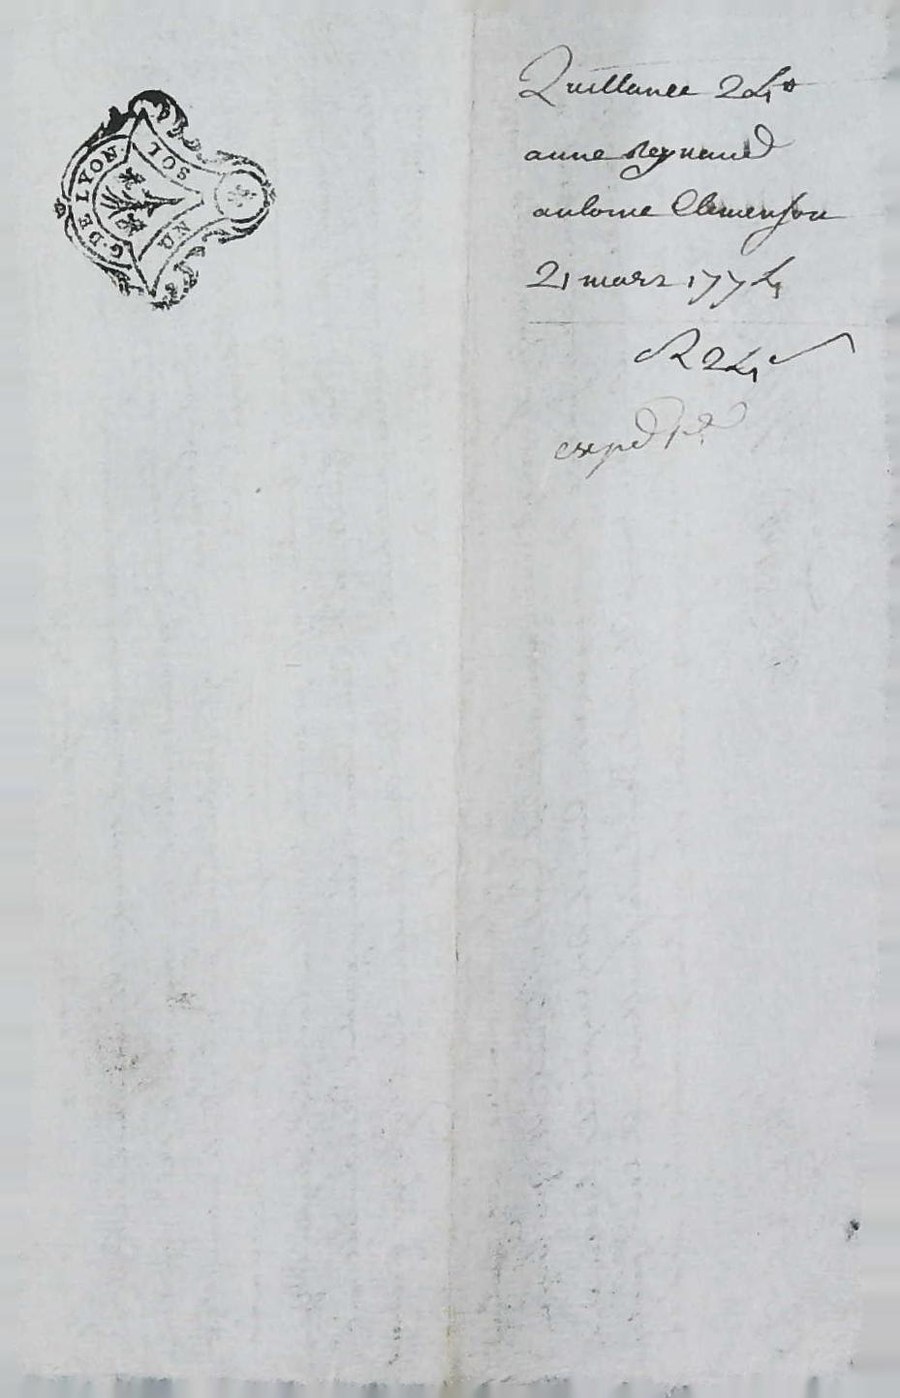 G. DE LYON.
UN SOL
Quittance 24#
anne Reynaud
antoine Clemenson
21 mars 1774
R 24 s
exped